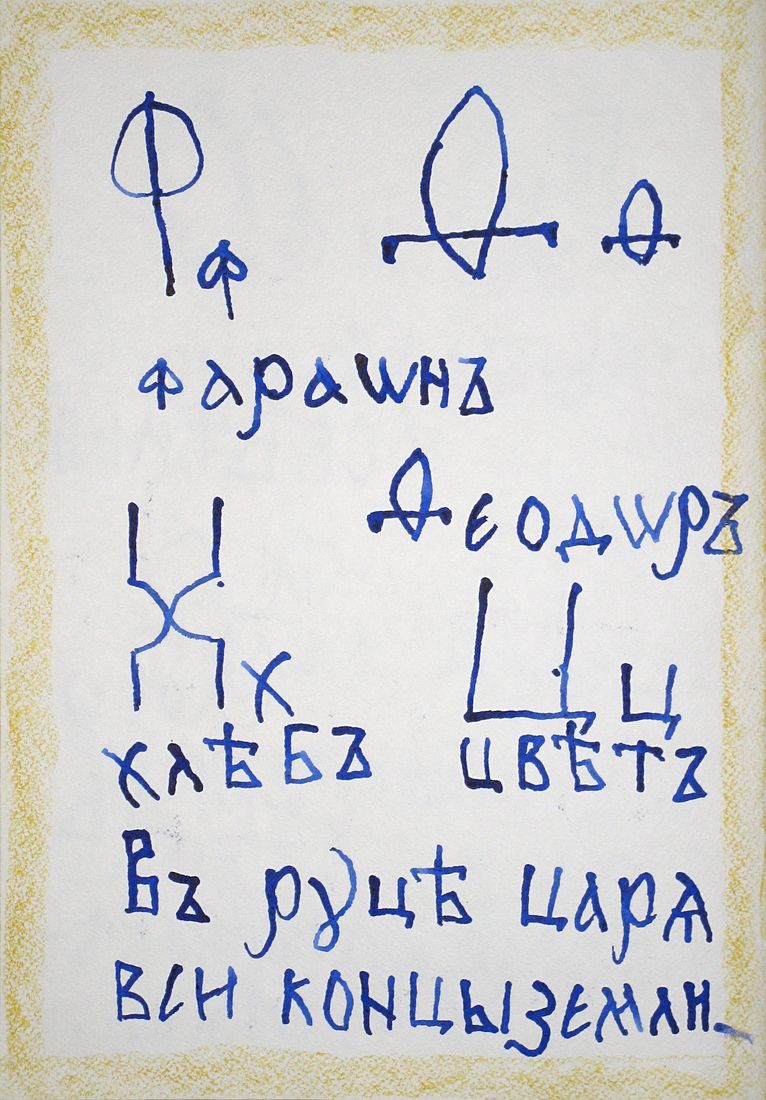 Ф ф Ѳ ѳ
фараѡнъ
Ѳеодѡръ
Х х Ц ц
хлѣбъ цвѣтъ
Въ руцѣ царѧ
вси концы земли.